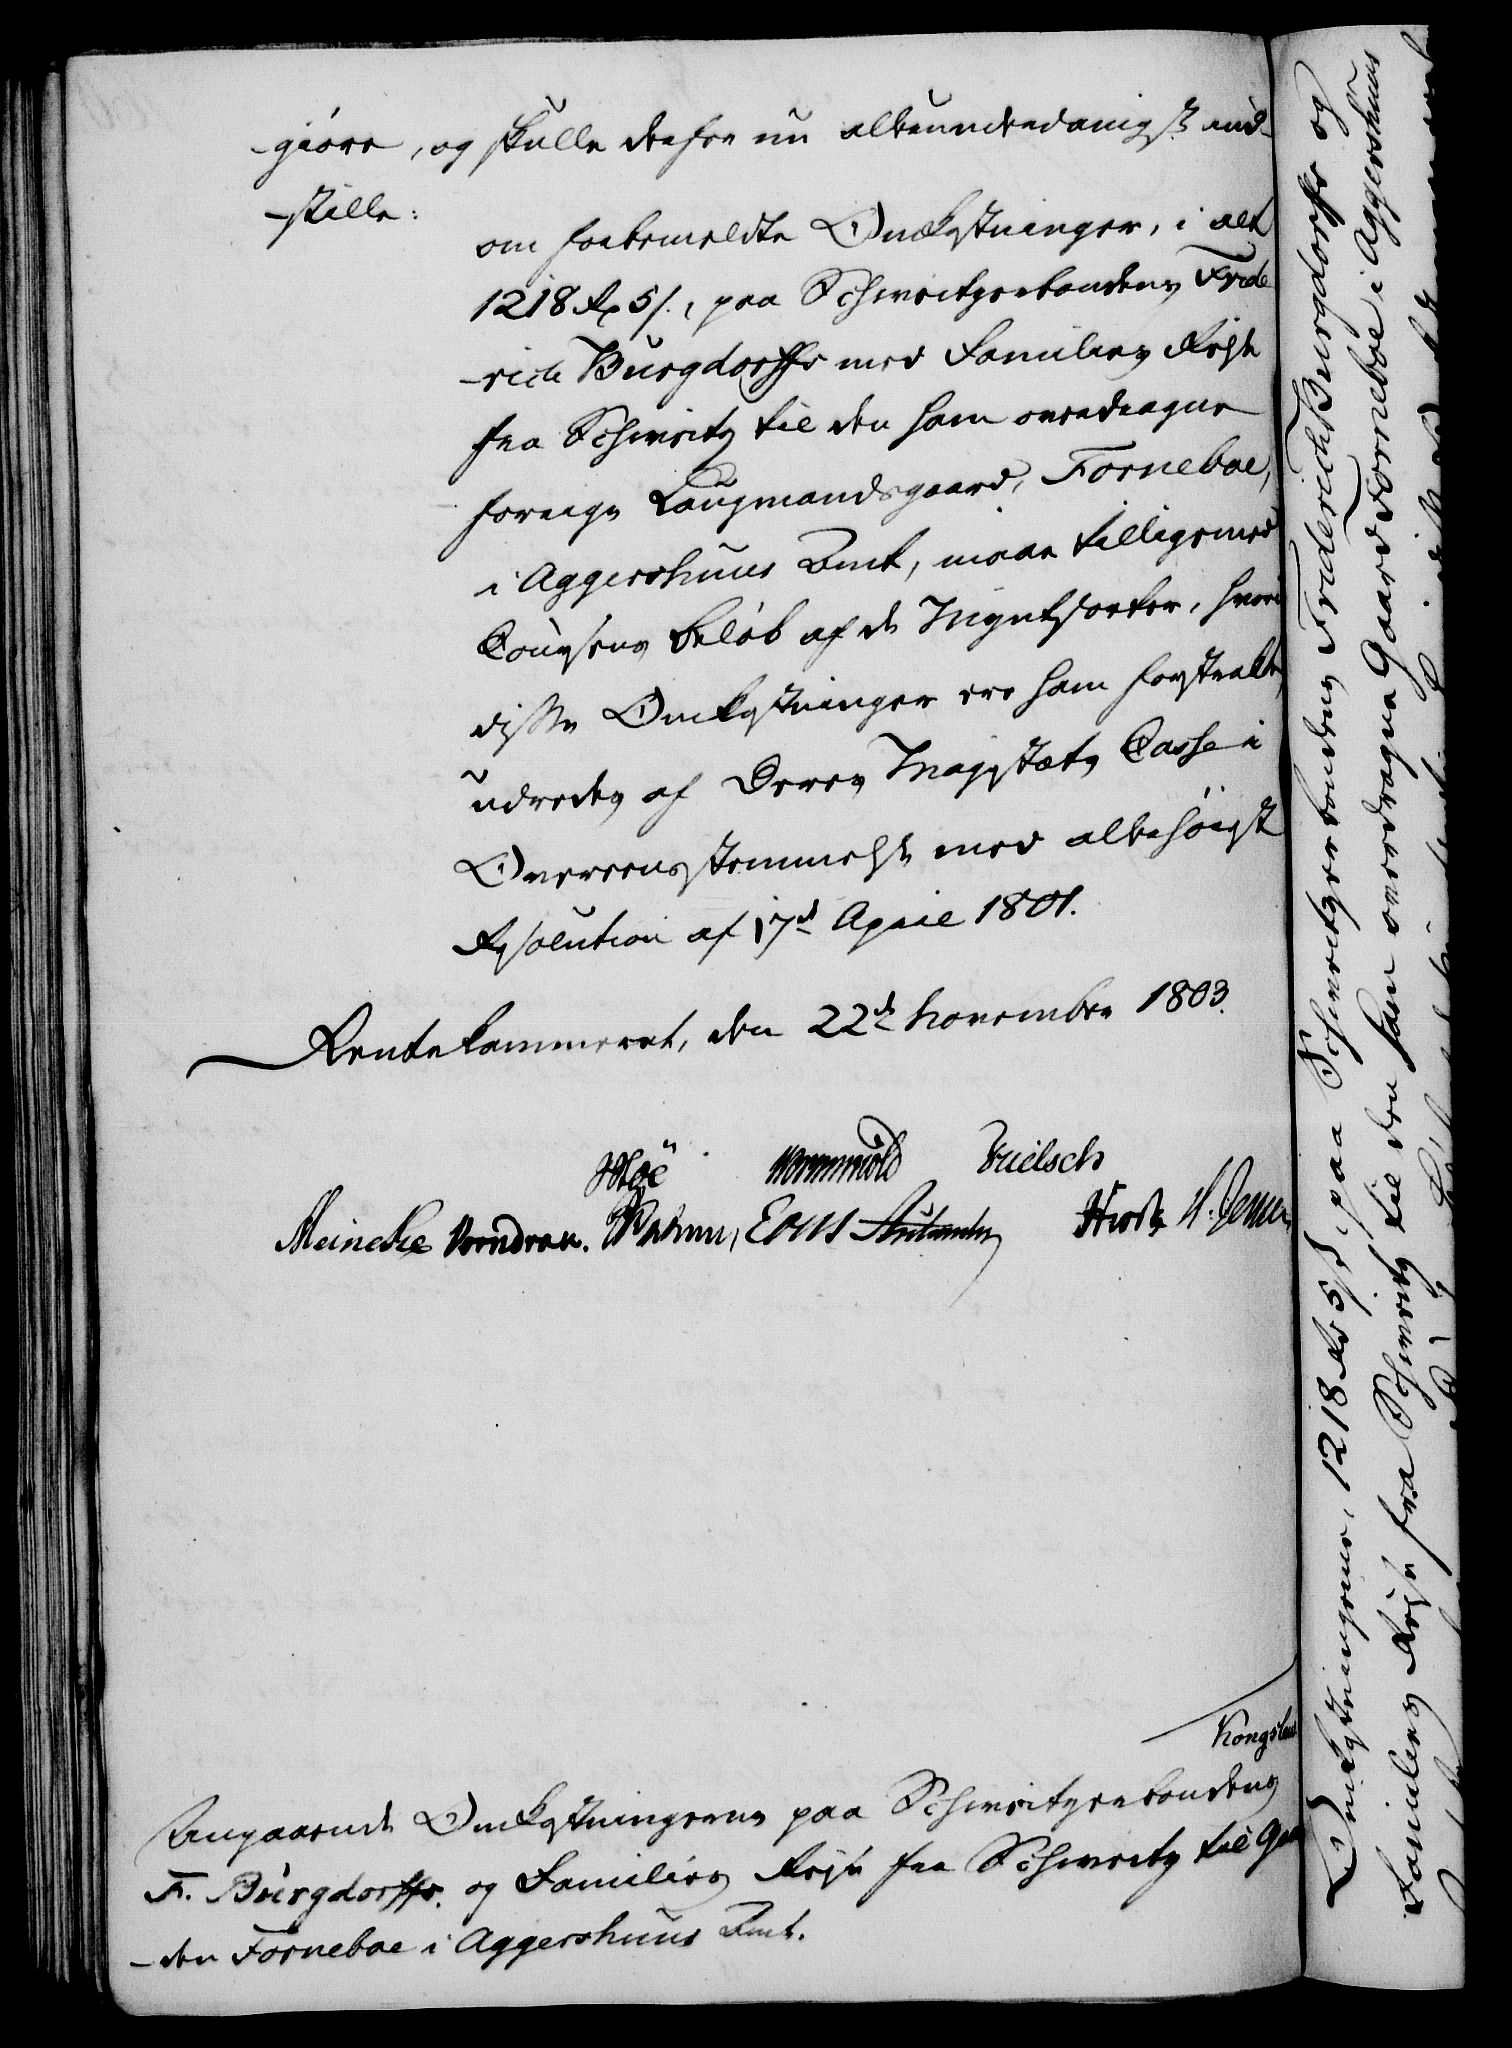 -giøre, og skulle derfor nu allerunderdanigst ind-
-stille:
om forbemeldte Omkostninger, i alt
1218 Rd 5 s., paa Schweitzerbondens Fride
-rich Burgdorffs med Families Reise
fra Schweitz til den ham overdragne
forrige Laugmandsgaard, Forneboe,
i Aggershuus Amt, maae tilligemed
Coursens Beløb af de Myntsorter, hvori
disse Omkostninger ere ham forstrakte,
udredes af Deres Majestæts Casse i
Overeensstemmelse med allerhøigst
Resolution af 17d April 1801.
Rentekammeret, den 22d November 1803.
Hoë Wormskiold Knielsch
Meincke Vorndran. Eous H. Jensen
Kongsl
Angaaende Omkostningerne paa Schweitzerbondens
F. Burgdorffs, og Families Reise fra Schweitz til Gaar
-den Forneboe i Aggershuus Amt.
Omkostningerne, 1218 Rd 5 s, paa Schweitzerbondens Friderich Burgdorffs og
Families Reise fra Schweitz til den ham overdragne Gaard Forneboe i Aggershuus